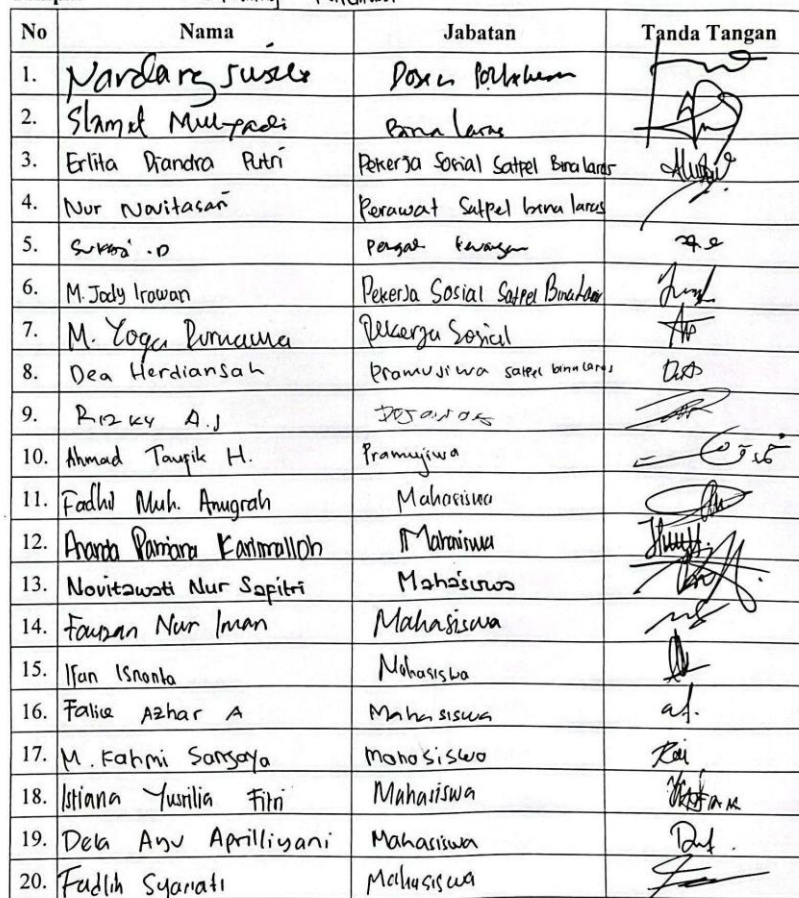 No Nama Jabatan Tanda Tangan
1. Nardang Susila Dosen
2. Slamet Mulyadi Bina laras
3. Erlita Diandra Putri Pekerja Sosial Satpel Bina laras
4. Nur Novitasari Perawat Satpel bina laras
5. .D
6. M. Jody Irawan Pekerja Sosial Satpel Bina Laras
7. M. Yoga Purnama Pekerja Sosial
8. Dea Herdiansah Pramujiwa satpel bina laras
9. Rizky A.J
10. Ahmad Taufik H. Pramujiwa
11. Fadhil Muh. Anugrah Mahasiswa
12. Ananda Karimalloh Mahasiswa
13. Novitawati Nur Sapitri Mahasiswa
14. Fauzan Nur Iman Mahasiswa
15. Ifan Isnanta Mahasiswa
16. Azhar A Mahasiswa
17. M. Fahmi Sansaya Mahasiswa
18. Istiana Yusrilia Fitri Mahasiswa
19. Dela Ayu Aprilliyani Mahasiswa
20. Fadlih Syariati Mahasiswa